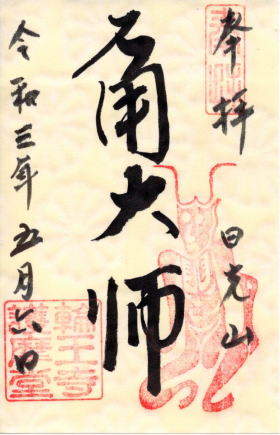 奉拝
日光山
角大師
令和三年五月六日
輪王寺
護摩堂